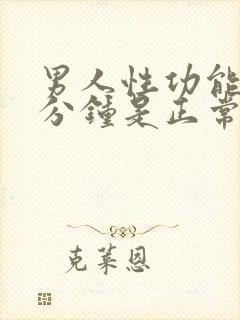 男人性功能
分鐘是正常
克萊恩